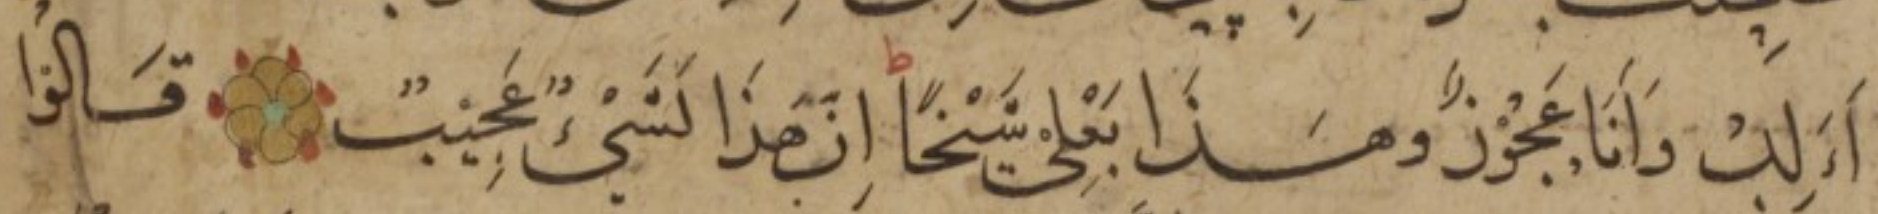 ءَاَلِدُ وَاَنَا عَجُوْزٌ وهَذَا بَعْلِىْ شَيْخًا اِنَّ هَذَا لَشَىْءٌ عَجِيْبٌ قَالُوْا